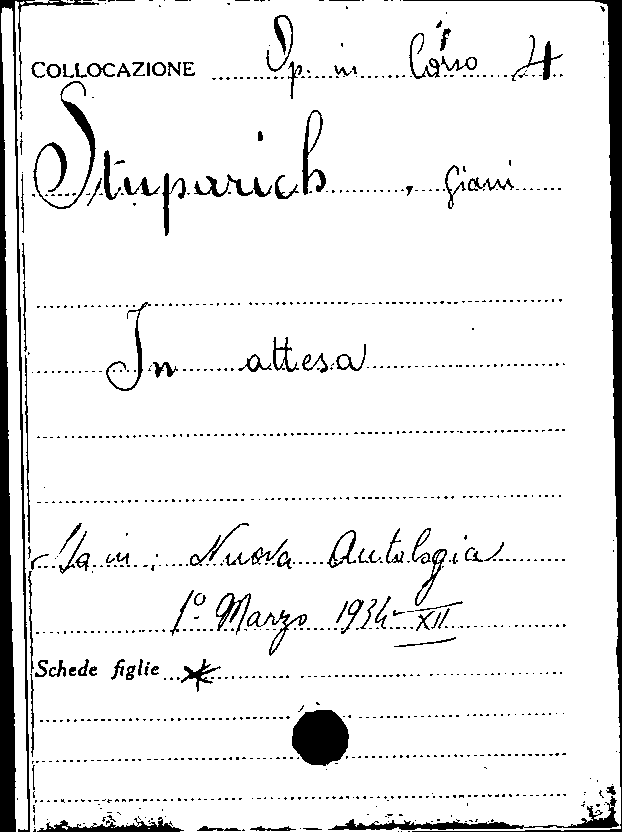 COLLOCAZIONE Op. in Corso 4
Stuparich, Giani
In attesa
Sta in: Nuova Antologia
1° Marzo 1934-XII
Schede figlie *